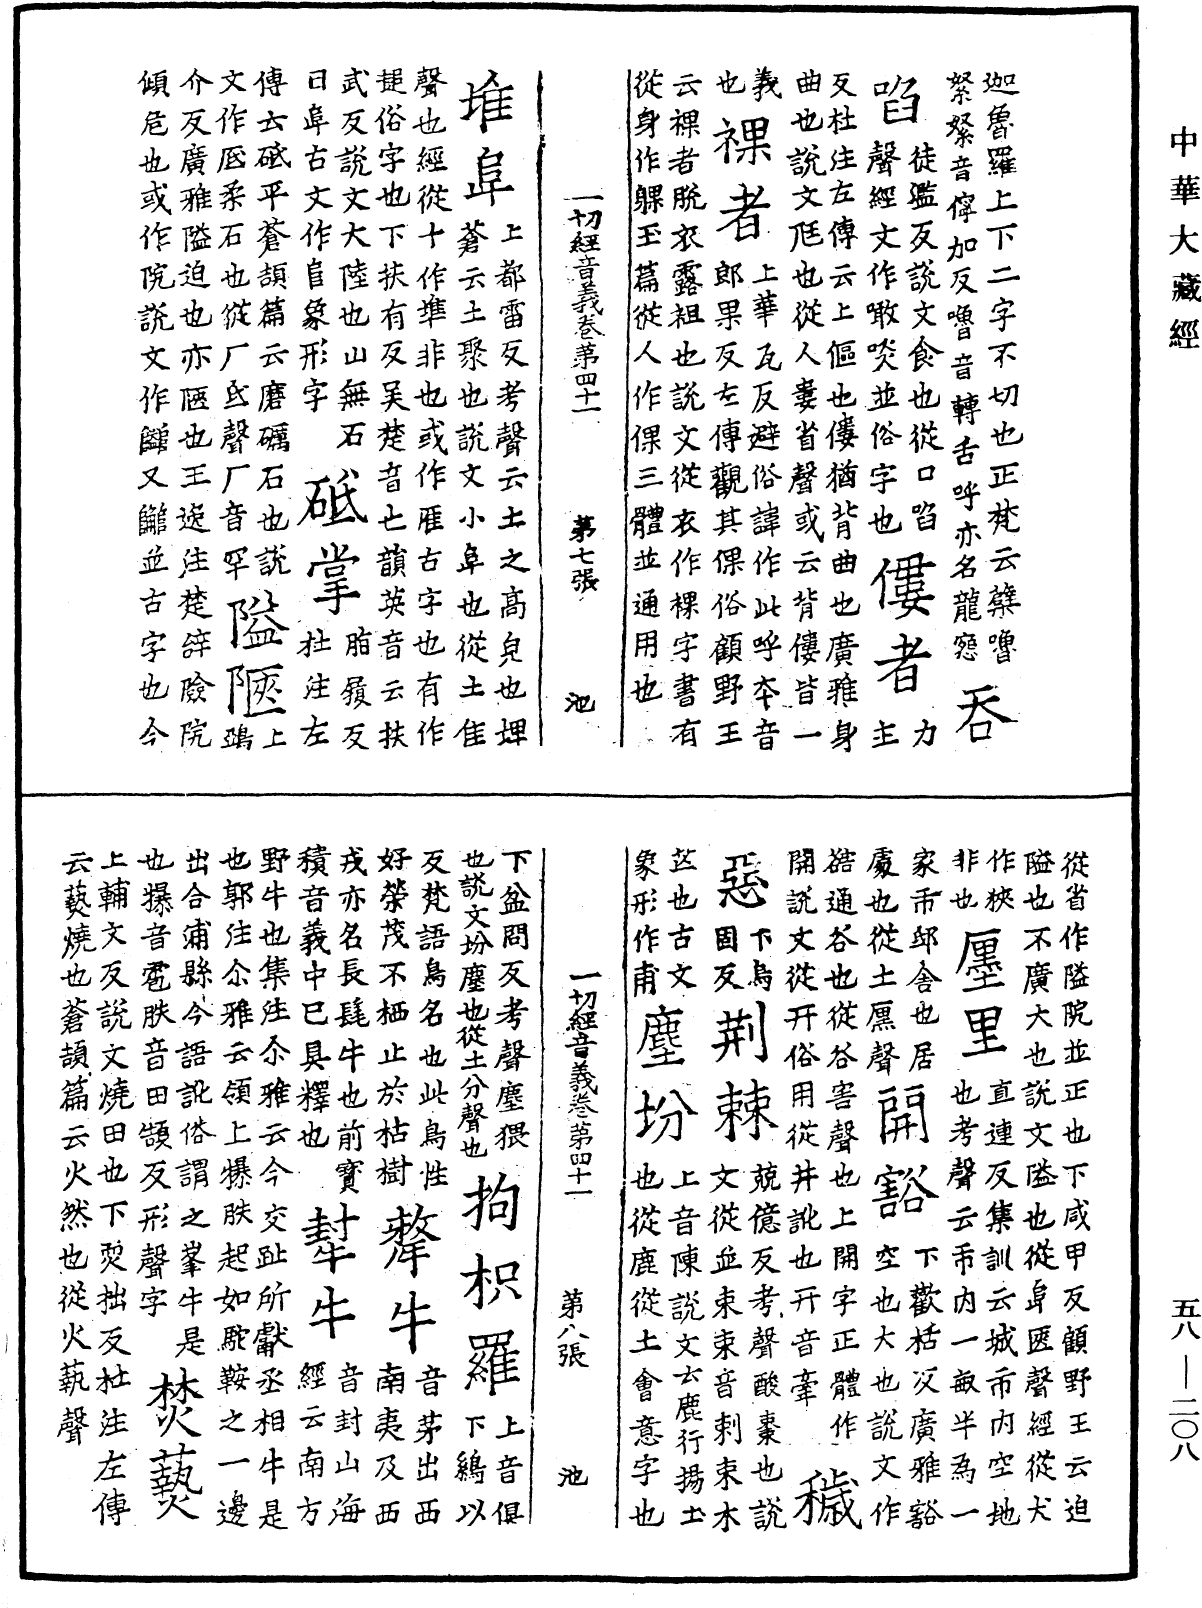 中華大藏經
迦魯羅上下二字不切也正梵云蘖嚕
孥孥音儜加反嚕音轉舌呼亦名龍怨 吞
啗 徒濫反說文食也從口啗
聲經文作噉啖並俗字也 僂者 力主
反杜注左傳云上傴也僂猶背曲也廣雅身
曲也說文尫也從人婁省聲或云背僂皆一
義也 裸者 上華瓦反避俗諱作此呼本音
郎果反左傳觀其倮俗顧野王
云裸者脫衣露袒也說文從衣作裸字書有
從身作躶玉篇從人作倮三體並通用也
一切經音義卷第四十一 第七張 池
堆阜 上都雷反考聲云土之高皃也埤
蒼云土聚也說文小阜也從土隹
聲也經從十作準非也或作𨸏古字也有作
㟪俗字也下扶有反吴楚音也韻英音云扶
武反說文大陸也山無石
曰阜古文作𨸏象形字 砥掌 脂履反
杜注左
傳云砥平蒼頡篇云磨礪石也說
文作厎柔石也從厂氐聲厂音罕 隘陿 上鵶
介反廣雅隘迫也亦陋也王逸注楚辝險阨
傾危也或作阨說文作𨽹又𨽻並古字也今
從省作隘阨並正也下咸甲反顧野王云迫
隘也不廣大也說文隘也從阜匧聲經從犬
作狹
非也 㕓里 直連反集訓云城市內空地
也考聲云市內一畝半爲一
家市邸舍也居
處也從土㕓聲 開豁 下歡栝反廣雅豁
空也大也說文作
𧯆通谷也從谷害聲也上開字正體作
開說文從幵俗用從井訛也幵音牽 穢
惡 下烏
固反 荆棘 兢億反考聲酸棗也說
文從並朿朿音刺朿木
芒也古文
象形作朿 塵坋 上音陳說文云鹿行揚土
也從鹿從土會意字也
一切經音義卷第四十一 第八張 池
下盆問反考聲塵猥
也說文坋塵也從土分聲也 拘枳羅 上音俱
下鷄以
反梵語鳥名也此鳥性
好榮茂不栖止於枯樹 犛牛 音茅出西
南夷及西
戎亦名長髦牛也前寶
積音義中已具釋也 犎牛 音封山海
經云南方
野牛也集注尒雅云今交趾所獻丞相牛是
也郭注尒雅云領上犦肤起如駝鞍之一邊
出合浦縣今語訛俗謂之峯牛是
也犦音雹肤音田頞反形聲字 焚爇
上輔文反說文燒田也下爇拙反杜注左傳
云爇燒也蒼頡篇云火然也從火蓺聲
五八—二〇八